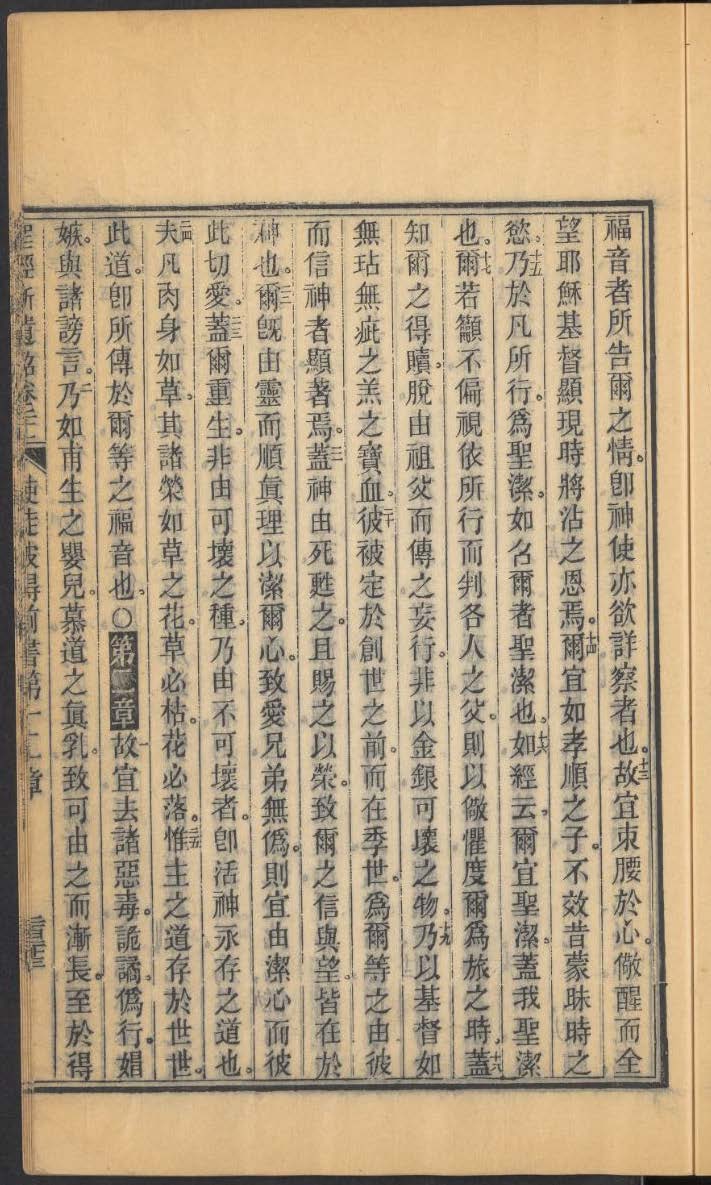 福音者所告爾之情。卽神使亦欲詳察者也。十三故宜束腰於心。儆醒而全
望耶穌基督顯現時將沾之恩焉。十四爾宜如孝順之子。不效昔蒙昧時之
慾。十五乃於凡所行。爲聖潔。如名爾者聖潔也。十六如經云、爾宜聖潔。蓋我聖潔
也。十七爾若籲不偏視依所行而判各人之父。則以儆懼度爾爲旅之時。十八蓋
知爾之得贖。脫由祖父而傳之妄行。非以金銀可壞之物。十九乃以基督如
無玷無疵之羔之寶血。二十彼被定於創世之前。而在季世。爲爾等之由彼
而信神者顯著焉。二一蓋神由死甦之。且賜之以榮。致爾之信與望皆在於
神也。二二爾旣由靈而順眞理以潔爾心。致愛兄弟無僞。則宜由潔心而彼
此切愛。二三蓋爾重生。非由可壞之種。乃由不可壞者。卽活神永存之道也。
二四夫凡肉身如草。其諸榮如草之花。草必枯。花必落。二五惟主之道存於世世。
此道。卽所傳於爾等之福音也。〇第 章一故宜去諸惡毒。詭譎。僞行。娼
嫉。與諸謗言。二乃如甫生之嬰兒。慕道之眞乳。致可由之而漸長。至於得